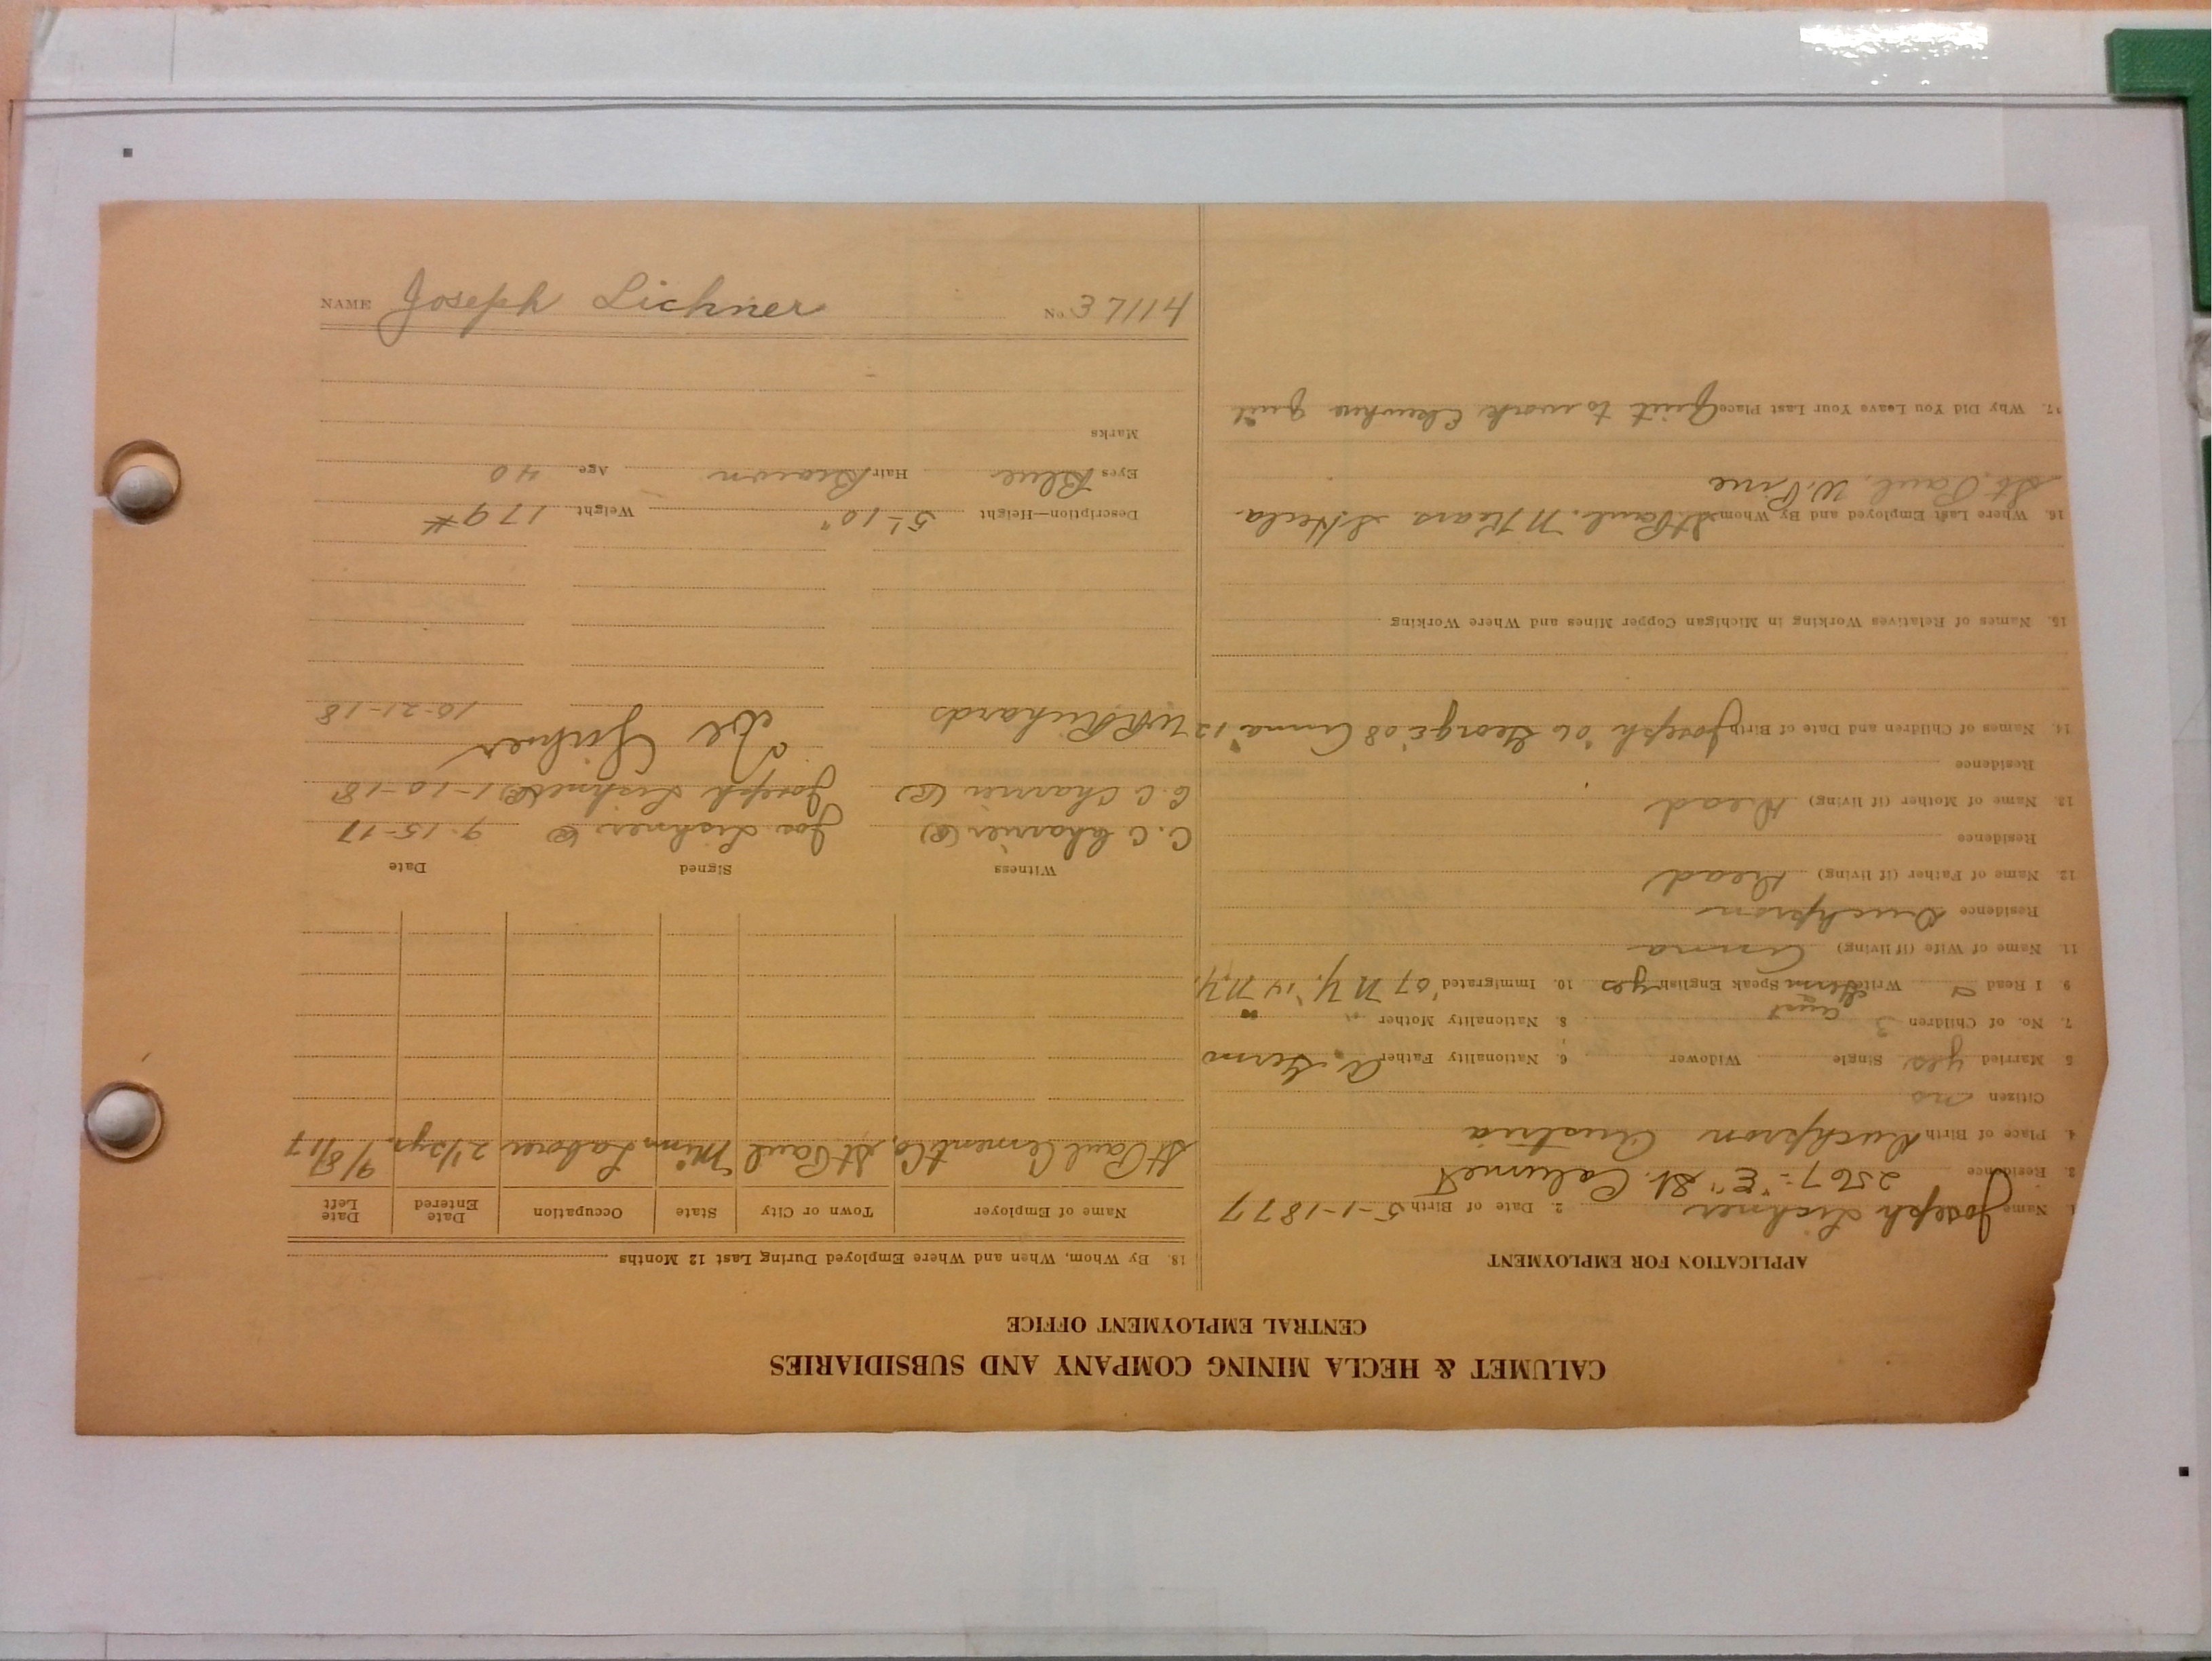 CALUMET & HECLA MINING COMPANY AND SUBSIDIARIES
CENTRAL EMPLOYMENT OFFICE
APPLICATION FOR EMPLOYMENT
1. Name Joseph Lichner 2. Date of Birth 5-1-1877
3. Residence 2567-"E" St. Calumet
4. Place of Birth Austria
Citizen no
5. Married yes Single Widower 6. Nationality Father A. Germ
7. No. of Children 3 8. Nationality Mother " "
9. I Read Write Germ Speak English yes 10. Immigrated '07 N.Y. '14 N.Y.
11. Name of Wife (if living) Anna
Residence
12. Name of Father (if living) Dead
Residence
13. Name of Mother (if living) Dead
Residence
14. Names of Children and Date of Birth Joseph '06 George '08 Anna '12
15. Names of Relatives Working in Michigan Copper Mines and Where Working
16. Where Last Employed and By Whom St Paul. N Kears. S. Hecla
St. Paul. W. Pine
17. Why Did You Leave Your Last Place Quit to work Elsewhere quit
18. By Whom, When and Where Employed During Last 12 Months
Name of Employer Town or City State Occupation Date Entered Date Left
St Paul Cement Co, St Paul Minn Laborer 2 1/2 yrs. 9/8/17
Witness Signed Date
C. C. Charrier (R) Jos Lichner (R) 9-15-17
C. C. Charrier (R) Joseph Lichner (R) 1-10-18
W R Richards 10-21-18
Description—Height 5'-10" Weight 179 #
Eyes Blue Hair Brown Age 40
Marks
NAME Joseph Lichner No. 37114